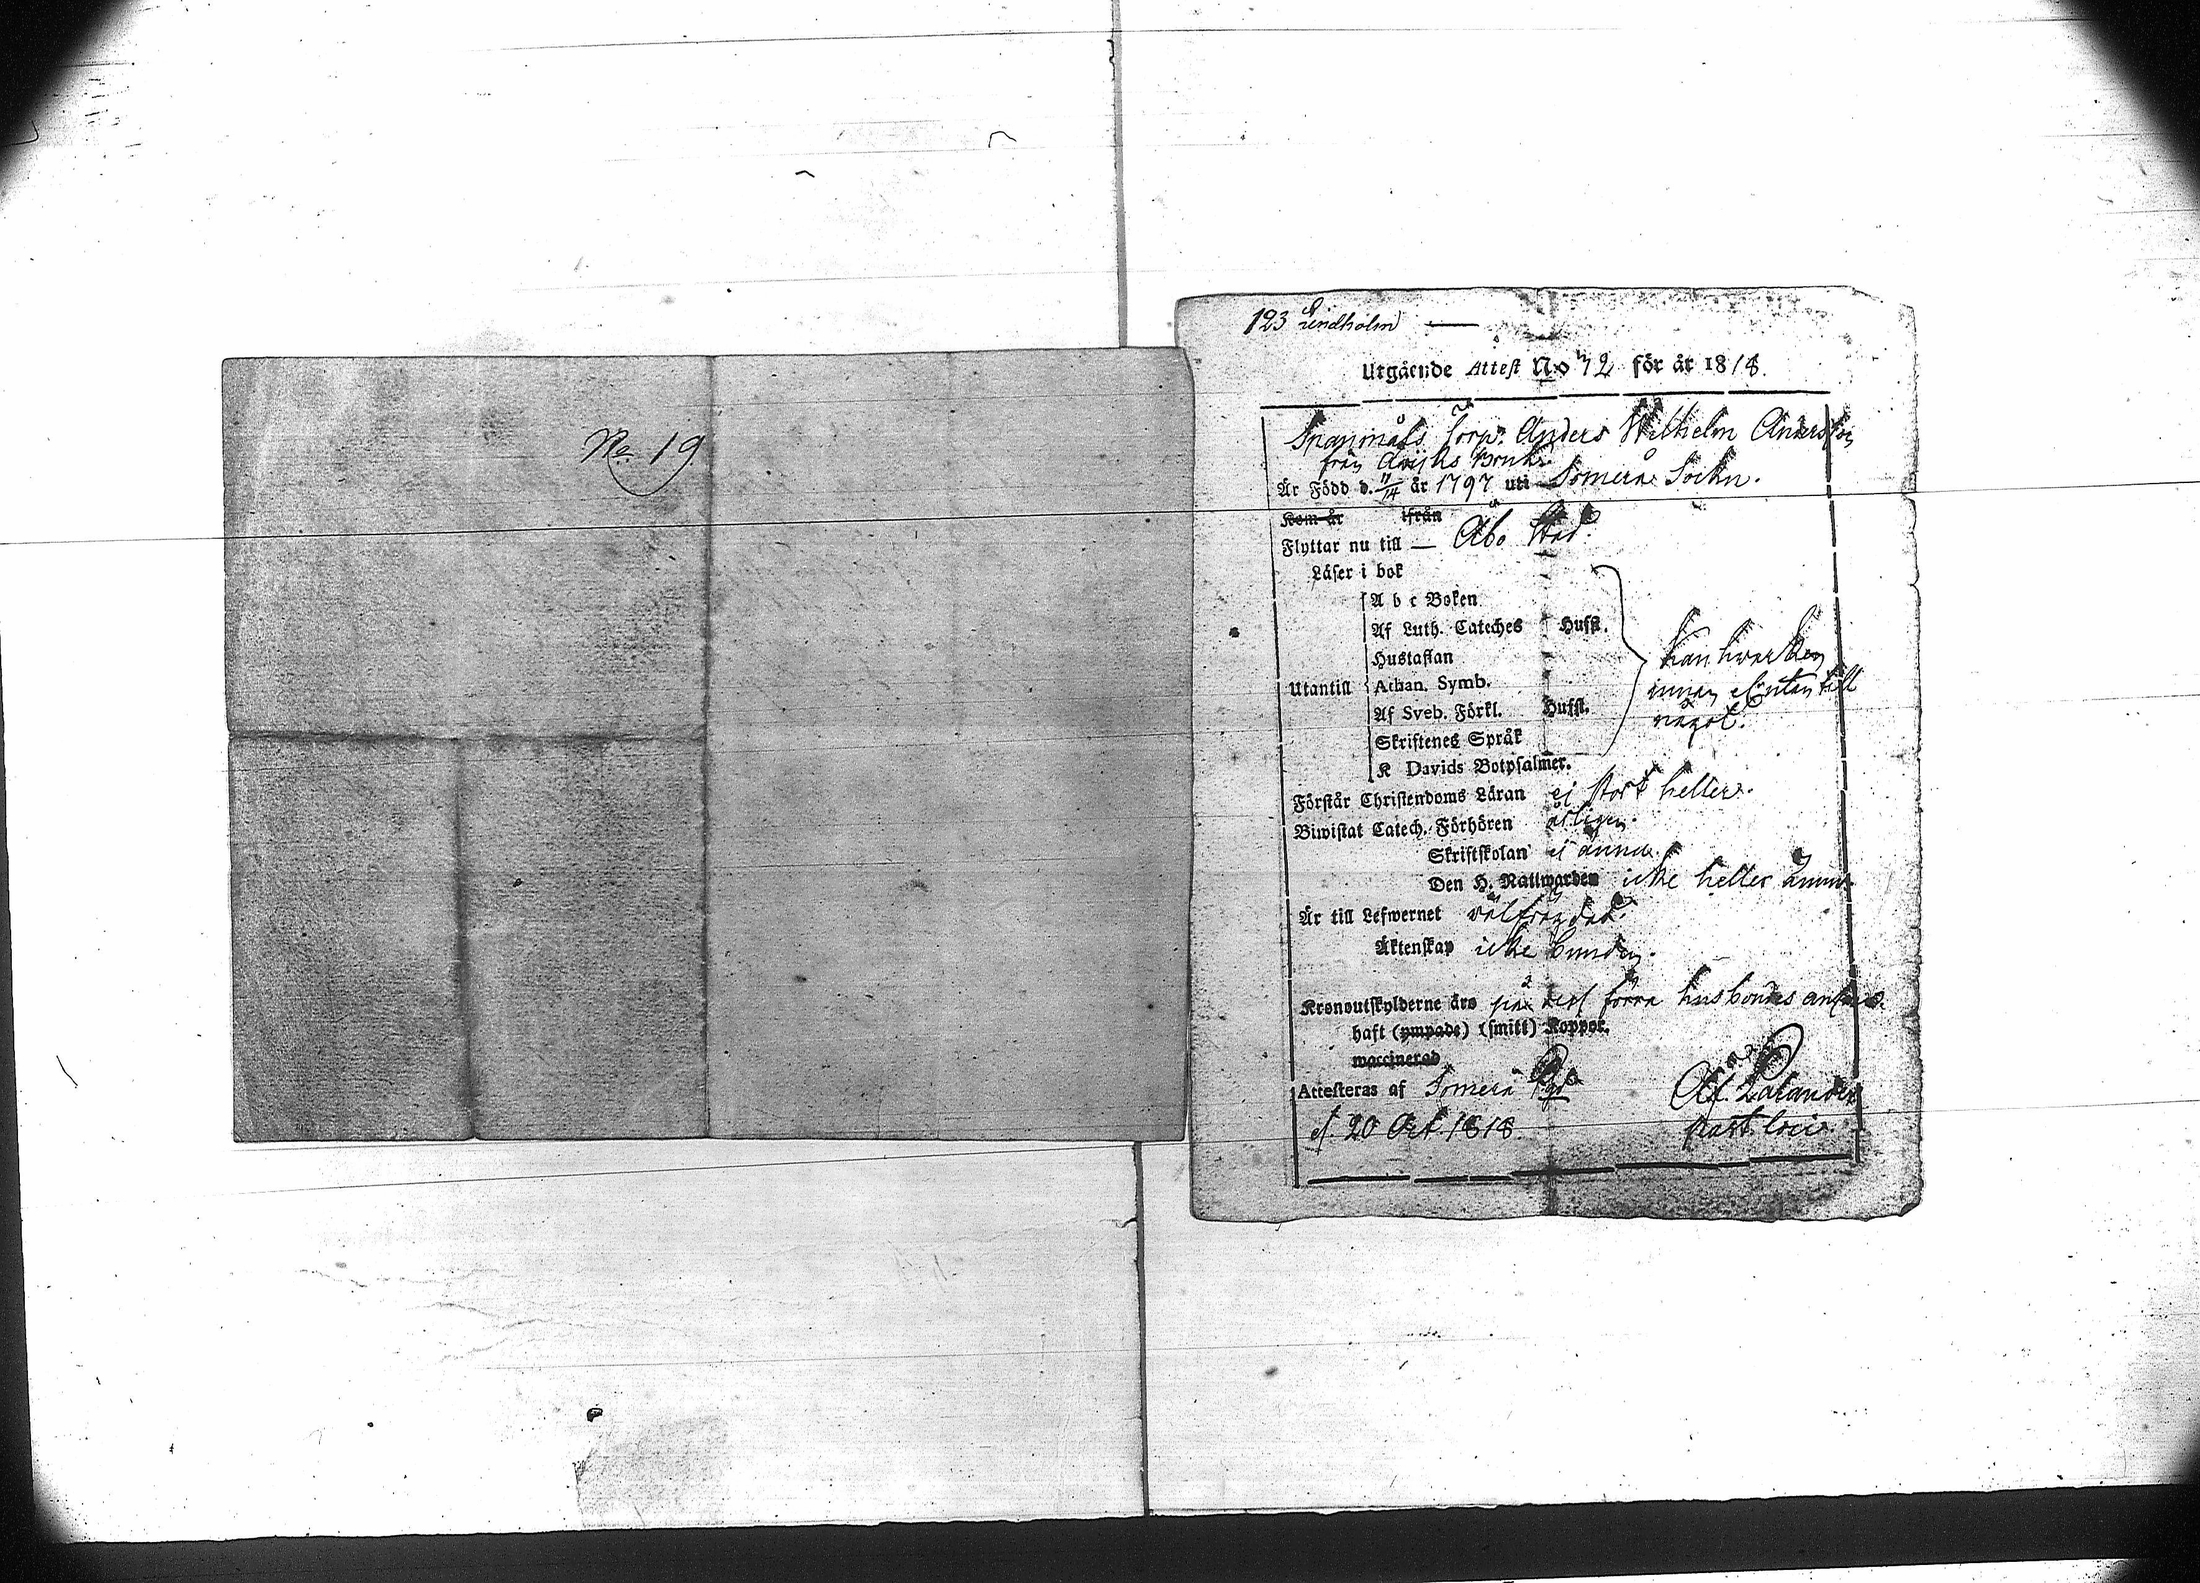 No 19
123 Lindholm
Utgående Attest No 72 för år 1818.
Torp. Anders Wilhelm Andersson
från Åvijks Bruk
Är Född d. 11/14 år 1797 uti Somero Sockn.
Kom år ifrån
Flyttar nu till — Åbo Stad.
Läser i bok
A b c Boken
Af Luth. Cateches Hufft.
Hustaflan
Utantill Athan. Symb.
Af Sveb. Förkl. Hufft.
Skriftenes Språk
K Davids Botpsalmer.
kan hvarken
innan el. utan till
något.
Förstår Christendoms Läran ej stort heller.
Biwistat Catech. Förhören årligen.
Skriftskolan ej ännu.
Den H. Nattwarden icke heller ännu.
Är till Lefwernet välfrägdad.
Äktenskap icke bunden.
Kronoutskylderne äro på dess förra husbondes ansvar.
haft (ympade) (smitt) Koppor.
waccinerad
Attesteras af Somero
d. 20 Oct. 1818.
Palander